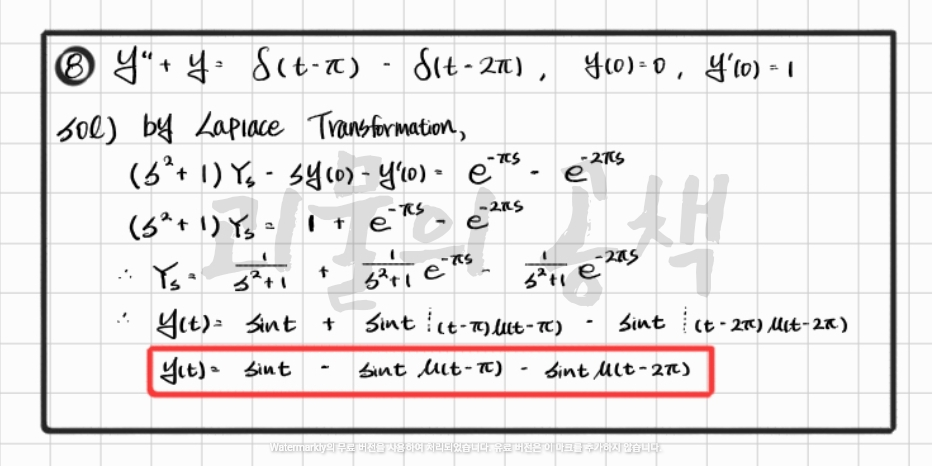 ⑧ y" + y = δ(t-π) - δ(t-2π), y(0)=0, y'(0)=1
sol) by Laplace Transformation,
(s²+1)Yₛ - sy(0) - y'(0) = e^-πs - e^-2πs
(s²+1)Yₛ = 1 + e^-πs - e^-2πs
∴ Yₛ = 1/(s²+1) + 1/(s²+1) e^-πs - 1/(s²+1) e^-2πs
∴ y(t) = sint + sint ⋮(t-π) u(t-π) - sint ⋮(t-2π) u(t-2π)
y(t) = sint - sint u(t-π) - sint u(t-2π)
괴물의 공책
Watermarkly의 무료 버전을 사용하여 처리되었습니다. 유료 버전은 이 마크를 추가하지 않습니다.